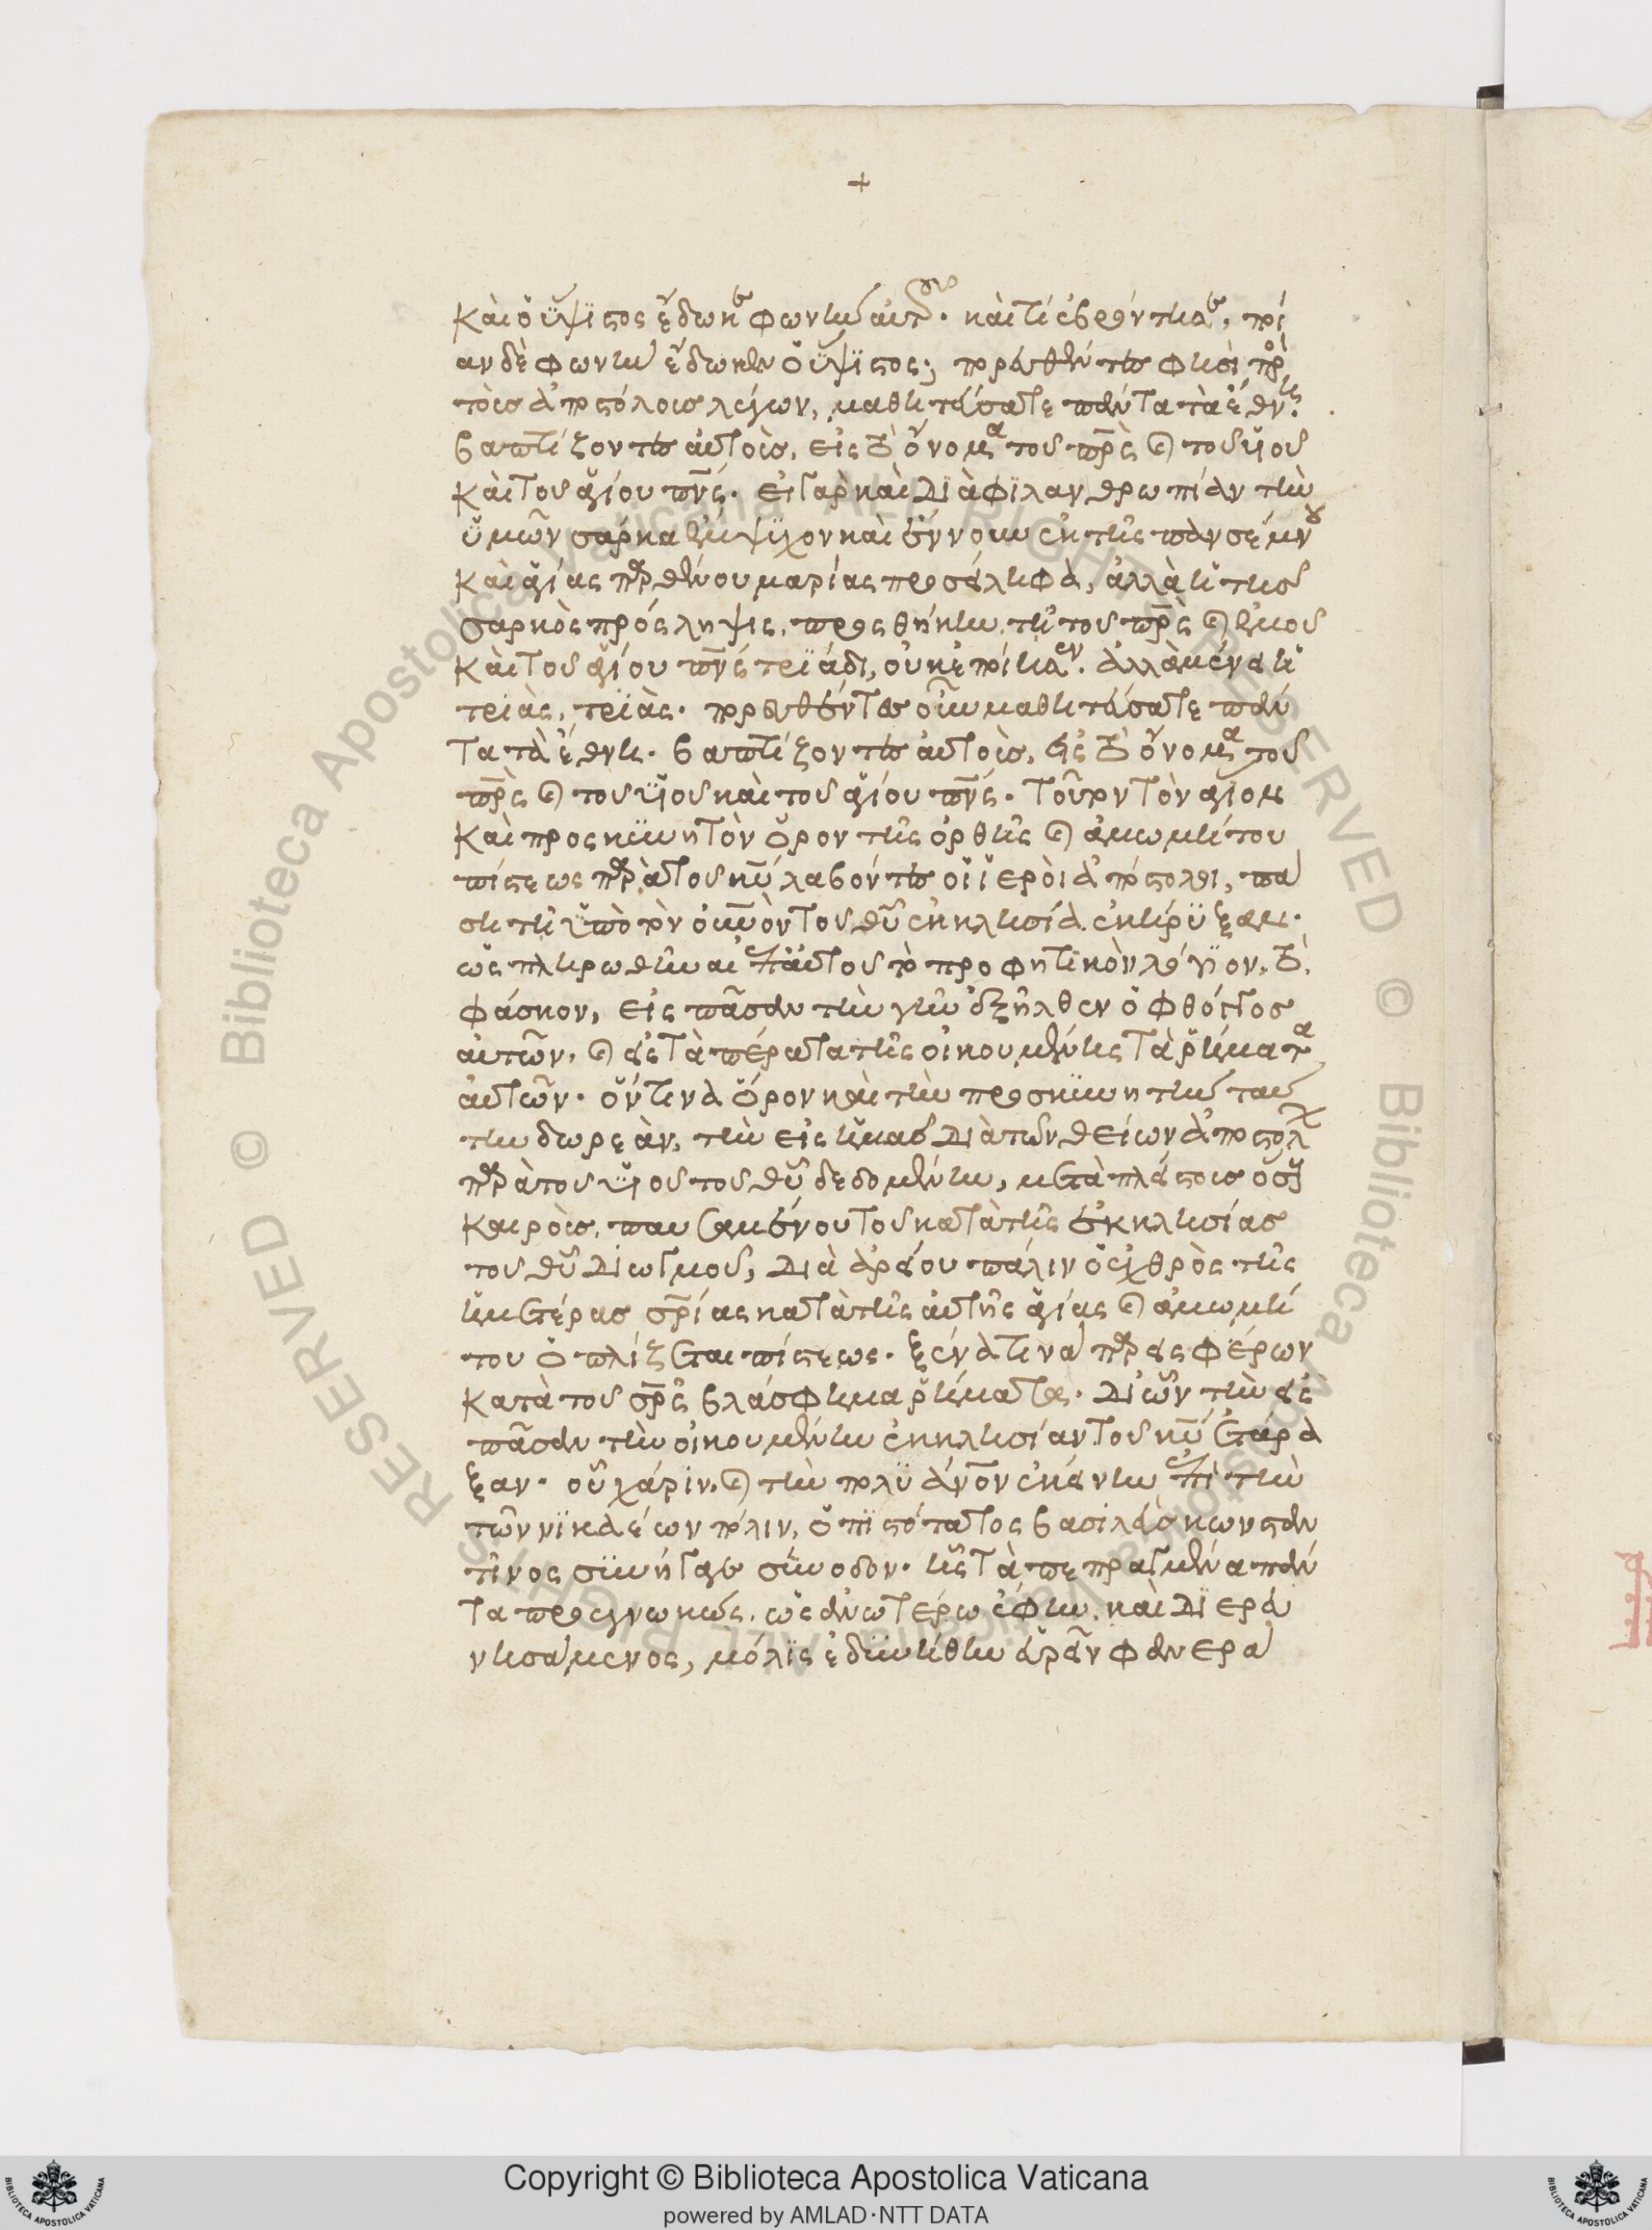 +
καὶ ὁ ὕψιστος ἔδωκε φωνὴν αὐτοῦ. καὶ τί ἐβρόντησε, ποί
αν δὲ φωνὴν ἔδωκεν ὁ ὕψιστος; πορευθέντες φησὶ πρὸς
τοῖς ἀποστόλοις λέγων, μαθητεύσατε πάντα τὰ ἔθνη.
βαπτίζοντες αὐτοὺς, εἰς τὸ ὄνομα τοῦ πρς καὶ τοῦ υἱοῦ
καὶ τοῦ ἁγίου πνς. εἰ γὰρ καὶ διὰ φιλανθρωπίαν τὴν
ὑμῶν σάρκα ἔμψυχον καὶ ἔννουν ἐκ τῆς πανσέμνου
καὶ ἁγίας παρθένου μαρίας προσέληφα, ἀλλὰ ἡ τῆς
σαρκὸς πρόσληψις, προσθήκην τῇ τοῦ πρς καὶ ἐμοῦ
καὶ τοῦ ἁγίου πνς τριάδι, οὐκ ἐποίησεν. ἀλλὰ μένει ἡ
τριὰς, τριὰς. πορευθέντες οὖν μαθητεύσατε πάν
τα τὰ ἔθνη. βαπτίζοντες αὐτοὺς, εἰς τὸ ὄνομα τοῦ
πρς καὶ τοῦ υἱοῦ καὶ τοῦ ἁγίου πνς. τοῦτον τὸν ἅγιον
καὶ προσκυνητὸν ὅρον τῆς ὀρθῆς καὶ ἀμωμήτου
πίστεως παρ' αὐτοῦ κυ λαβόντες οἱ ἱεροὶ ἀπόστολοι, πά
σῃ τῇ ὑπὸ τὸν οὐνον τοῦ θυ ἐκκλησίᾳ ἐκήρυξαν.
ὡς πληρωθῆναι ἐπ' αὐτοὺς τὸ προφητικὸν λόγιον, τὸ
φάσκον, εἰς πᾶσαν τὴν γῆν ἐξῆλθεν ὁ φθόγγος
αὐτῶν, καὶ εἰς τὰ πέρατα τῆς οἰκουμένης τὰ ῥήματα
αὐτῶν. ὅντινα ὅρον καὶ τὴν προσκυνητὴν ταύ
την δωρεὰν, τὴν εἰς ἡμᾶς διὰ τῶν θείων ἀποστόλων
παρὰ τοῦ υἱοῦ τοῦ θυ δεδομένην, μετὰ πλείστοις ὅσοις
καιροῖς, παυσαμένου τοῦ κατὰ τῆς ἐκκλησίας
τοῦ θυ διωγμοῦ, διὰ ἀρείου πάλιν ὁ ἐχθρὸς τῆς
ἡμετέρας σρίας κατὰ τῆς αὐτῆς ἁγίας καὶ ἀμωμή
του ὁπλίζεται πίστεως. ξένα τινὰ παρεισφέρων
κατὰ τοῦ σρς βλάσφημα ῥήματα. δι' ὧν τὴν εἰς
πᾶσαν τὴν οἰκουμένην ἐκκλησίαν τοῦ κυ ἐτάρα
ξαν. οὗ χάριν, καὶ τὴν πολυάνον ἐκείνην ἐπὶ τὴν
τῶν νικαέων πόλιν, ὁ πιστότατος βασιλεὺς κωνσταν
τῖνος συνήγαγε σύνοδον. ἧς τὰ πεπραγμένα πάν
τα προεγνωκὼς, ὡς ἀνωτέρω ἔφην, καὶ διερευ
νησάμενος, μόλις ἐδυνήθην εὑρεῖν φανερὰ